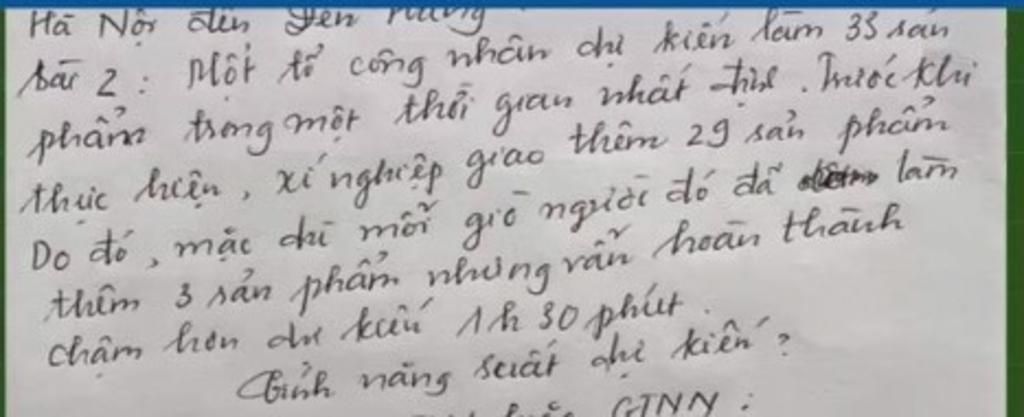 Hà Nội đến Yên
bài 2: Một tổ công nhân dự kiến làm 33 sản
phẩm trong một thời gian nhất định. Trước khi
thực hiện, xí nghiệp giao thêm 29 sản phẩm
Do đó, mặc dù mỗi giờ người đó đã làm
thêm 3 sản phẩm nhưng vẫn hoàn thành
chậm hơn dự kiến 1h 30 phút.
Tính năng suất dự kiến?
GTNN: